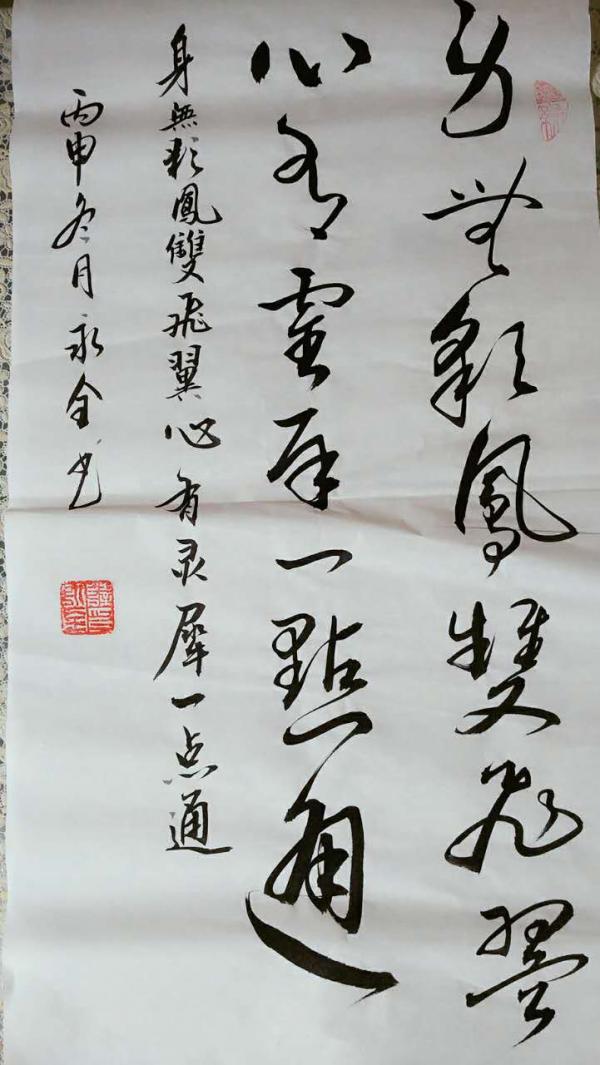 身無彩鳳雙飛翼
心有靈犀一點通
身無彩鳳雙飛翼心有灵犀一点通
丙申冬月永全书